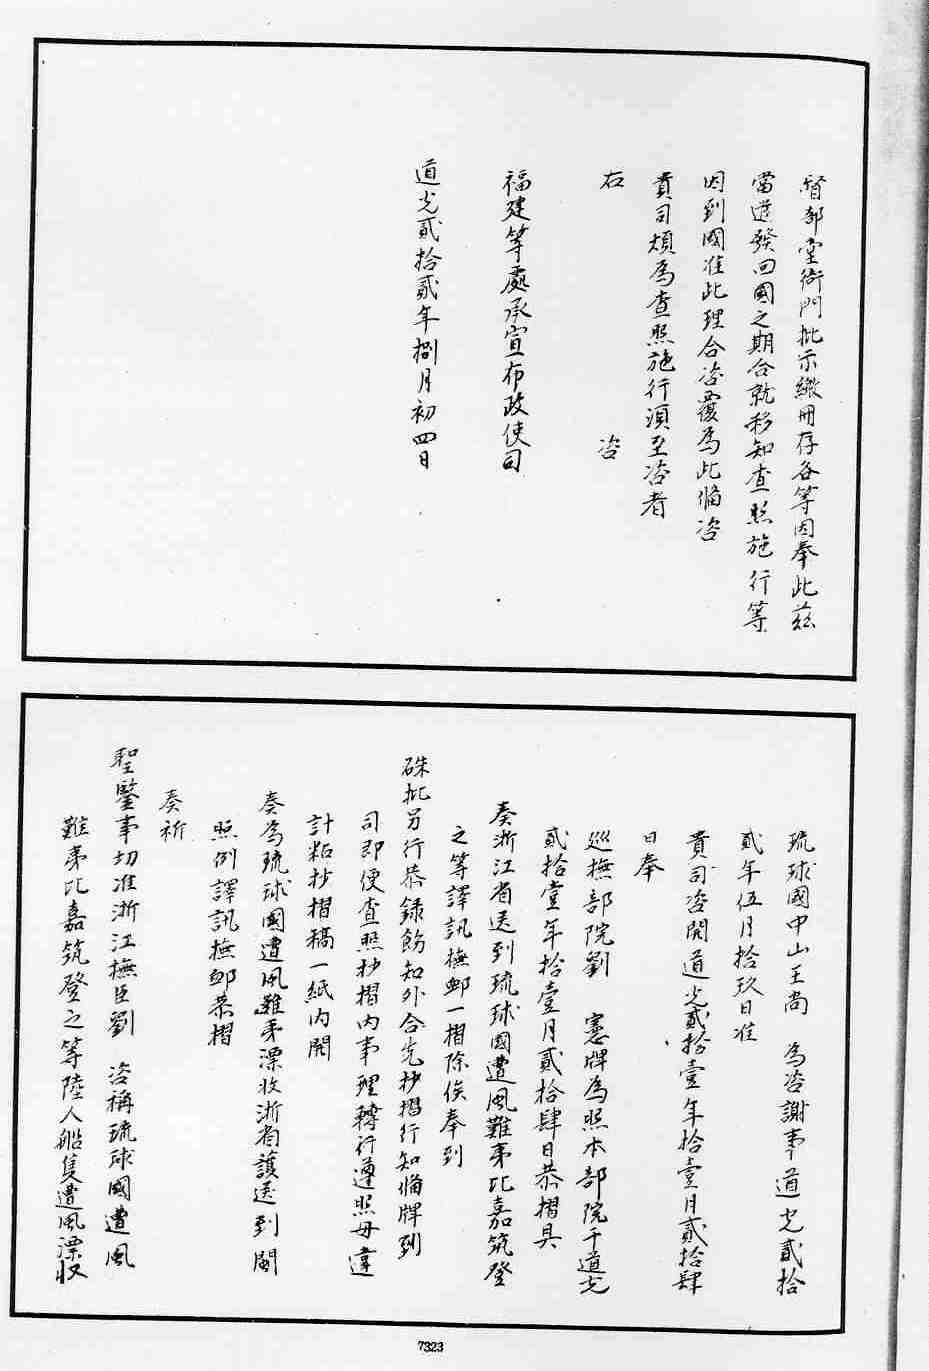 督部堂衙門批示繳冊存各等因奉此茲
當遣發回國之期合就移知查照施行等
因到國准此理合咨覆為此備咨
貴司煩為查照施行須至咨者
右　　　　　　咨
福建等處承宣布政使司
道光貳拾貳年捌月初四日
琉球國中山王尚　為咨謝事道光貳拾
貳年伍月拾玖日准
貴司咨開道光貳拾壹年拾壹月貳拾肆
日奉
巡撫部院劉　憲牌為照本部院于道光
貳拾壹年拾壹月貳拾肆日恭摺具
奏浙江省送到琉球國遭風難夷比嘉筑登
之等譯訊撫卹一摺除俟奉到
硃批另行恭錄飭知外合先抄摺行知備牌到
司即便查照抄摺內事理轉行遵照毋違
計粘抄摺稿一紙內開
奏為琉球國遭風難夷漂收浙省護送到閩
照例譯訊撫卹恭摺
奏祈
聖鑒事切准浙江撫臣劉　咨稱琉球國遭風
難夷比嘉筑登之等陸人船隻遭風漂收
7323